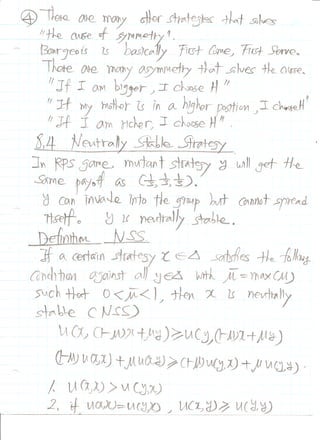 ④ There are many other strategies that solves
"the curse of symmetry".
Bourgeois is basically First Come, First Serve.
There are many asymmetry that solves the curse.
"If I am bigger, I choose H"
"If my mother is in a higher position, I choose H"
"If I am richer, I choose H".
8.4 Neutrally Stable Strategy
In RPS game, mutant strategy y will get the
same payoff as (1/3, 1/3, 1/3).
y can invade into the group but cannot spread
itself. y is neutrally stable.
Definition NSS
If a certain strategy x∈Δ satisfies the following
condition against all y∈Δ with μ̄ = max(μ)
such that 0<μ̄<1, then x is neutrally
stable (NSS)
u(x, (1-μ)x+μy) ≥ u(y, (1-μ)x+μy)
(1-μ)u(x,x) + μu(x,y) ≥ (1-μ)u(y,x) + μu(y,y).
1. u(x,x) > u(y,x)
2. if u(x,x)=u(y,x), u(x,y) ≥ u(y,y)